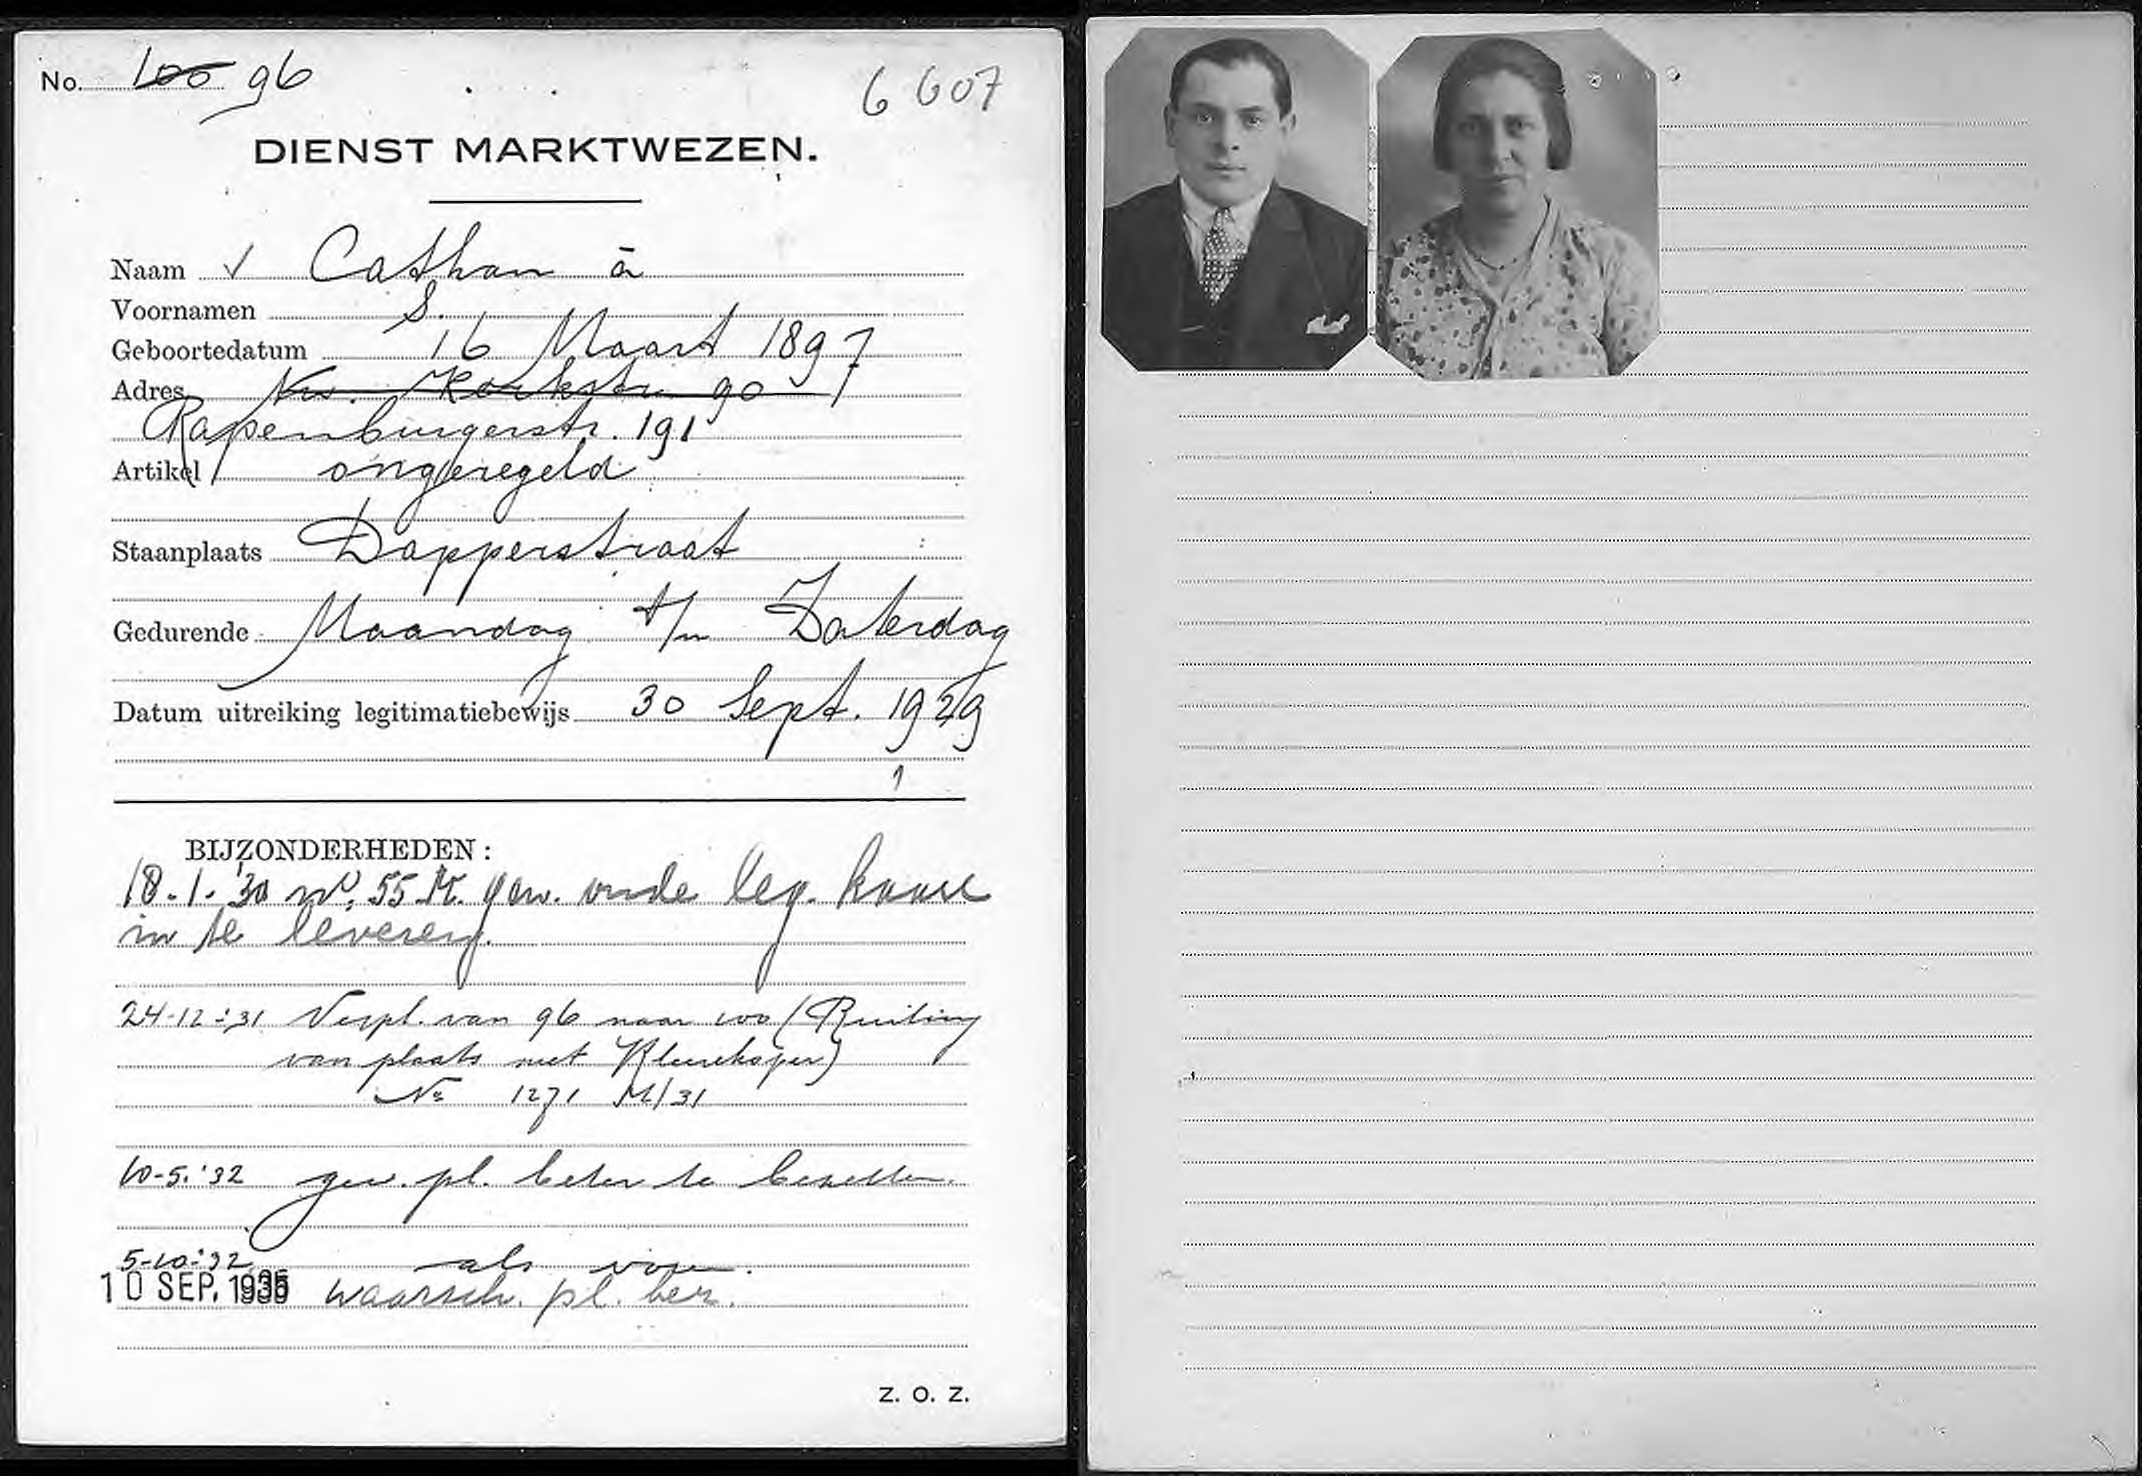 No. 100 96
6607
DIENST MARKTWEZEN.
Naam √ Cathan à
Voornamen S.
Geboortedatum 16 Maart 1897
Adres Nw. Kerkstr. 90
Rapenburgerstr. 191
Artikel ongeregeld
Staanplaats Dapperstraat
Gedurende Maandag t/m Zaterdag
Datum uitreiking legitimatiebewijs 30 Sept. 1929
1
BIJZONDERHEDEN:
18-1-'30 no. 55 M. gew. oude leg. kaart
in te leveren.
24-12-'31 Verpl. van 96 naar 100 (Ruiling
van plaats met Kleerekoper)
No 1271 M/31
10-5-'32 gew. pl. beter te bezetten.
5-10-'32 als voren.
10 SEP. 1935 waarsch. pl. bez.
Z. O. Z.